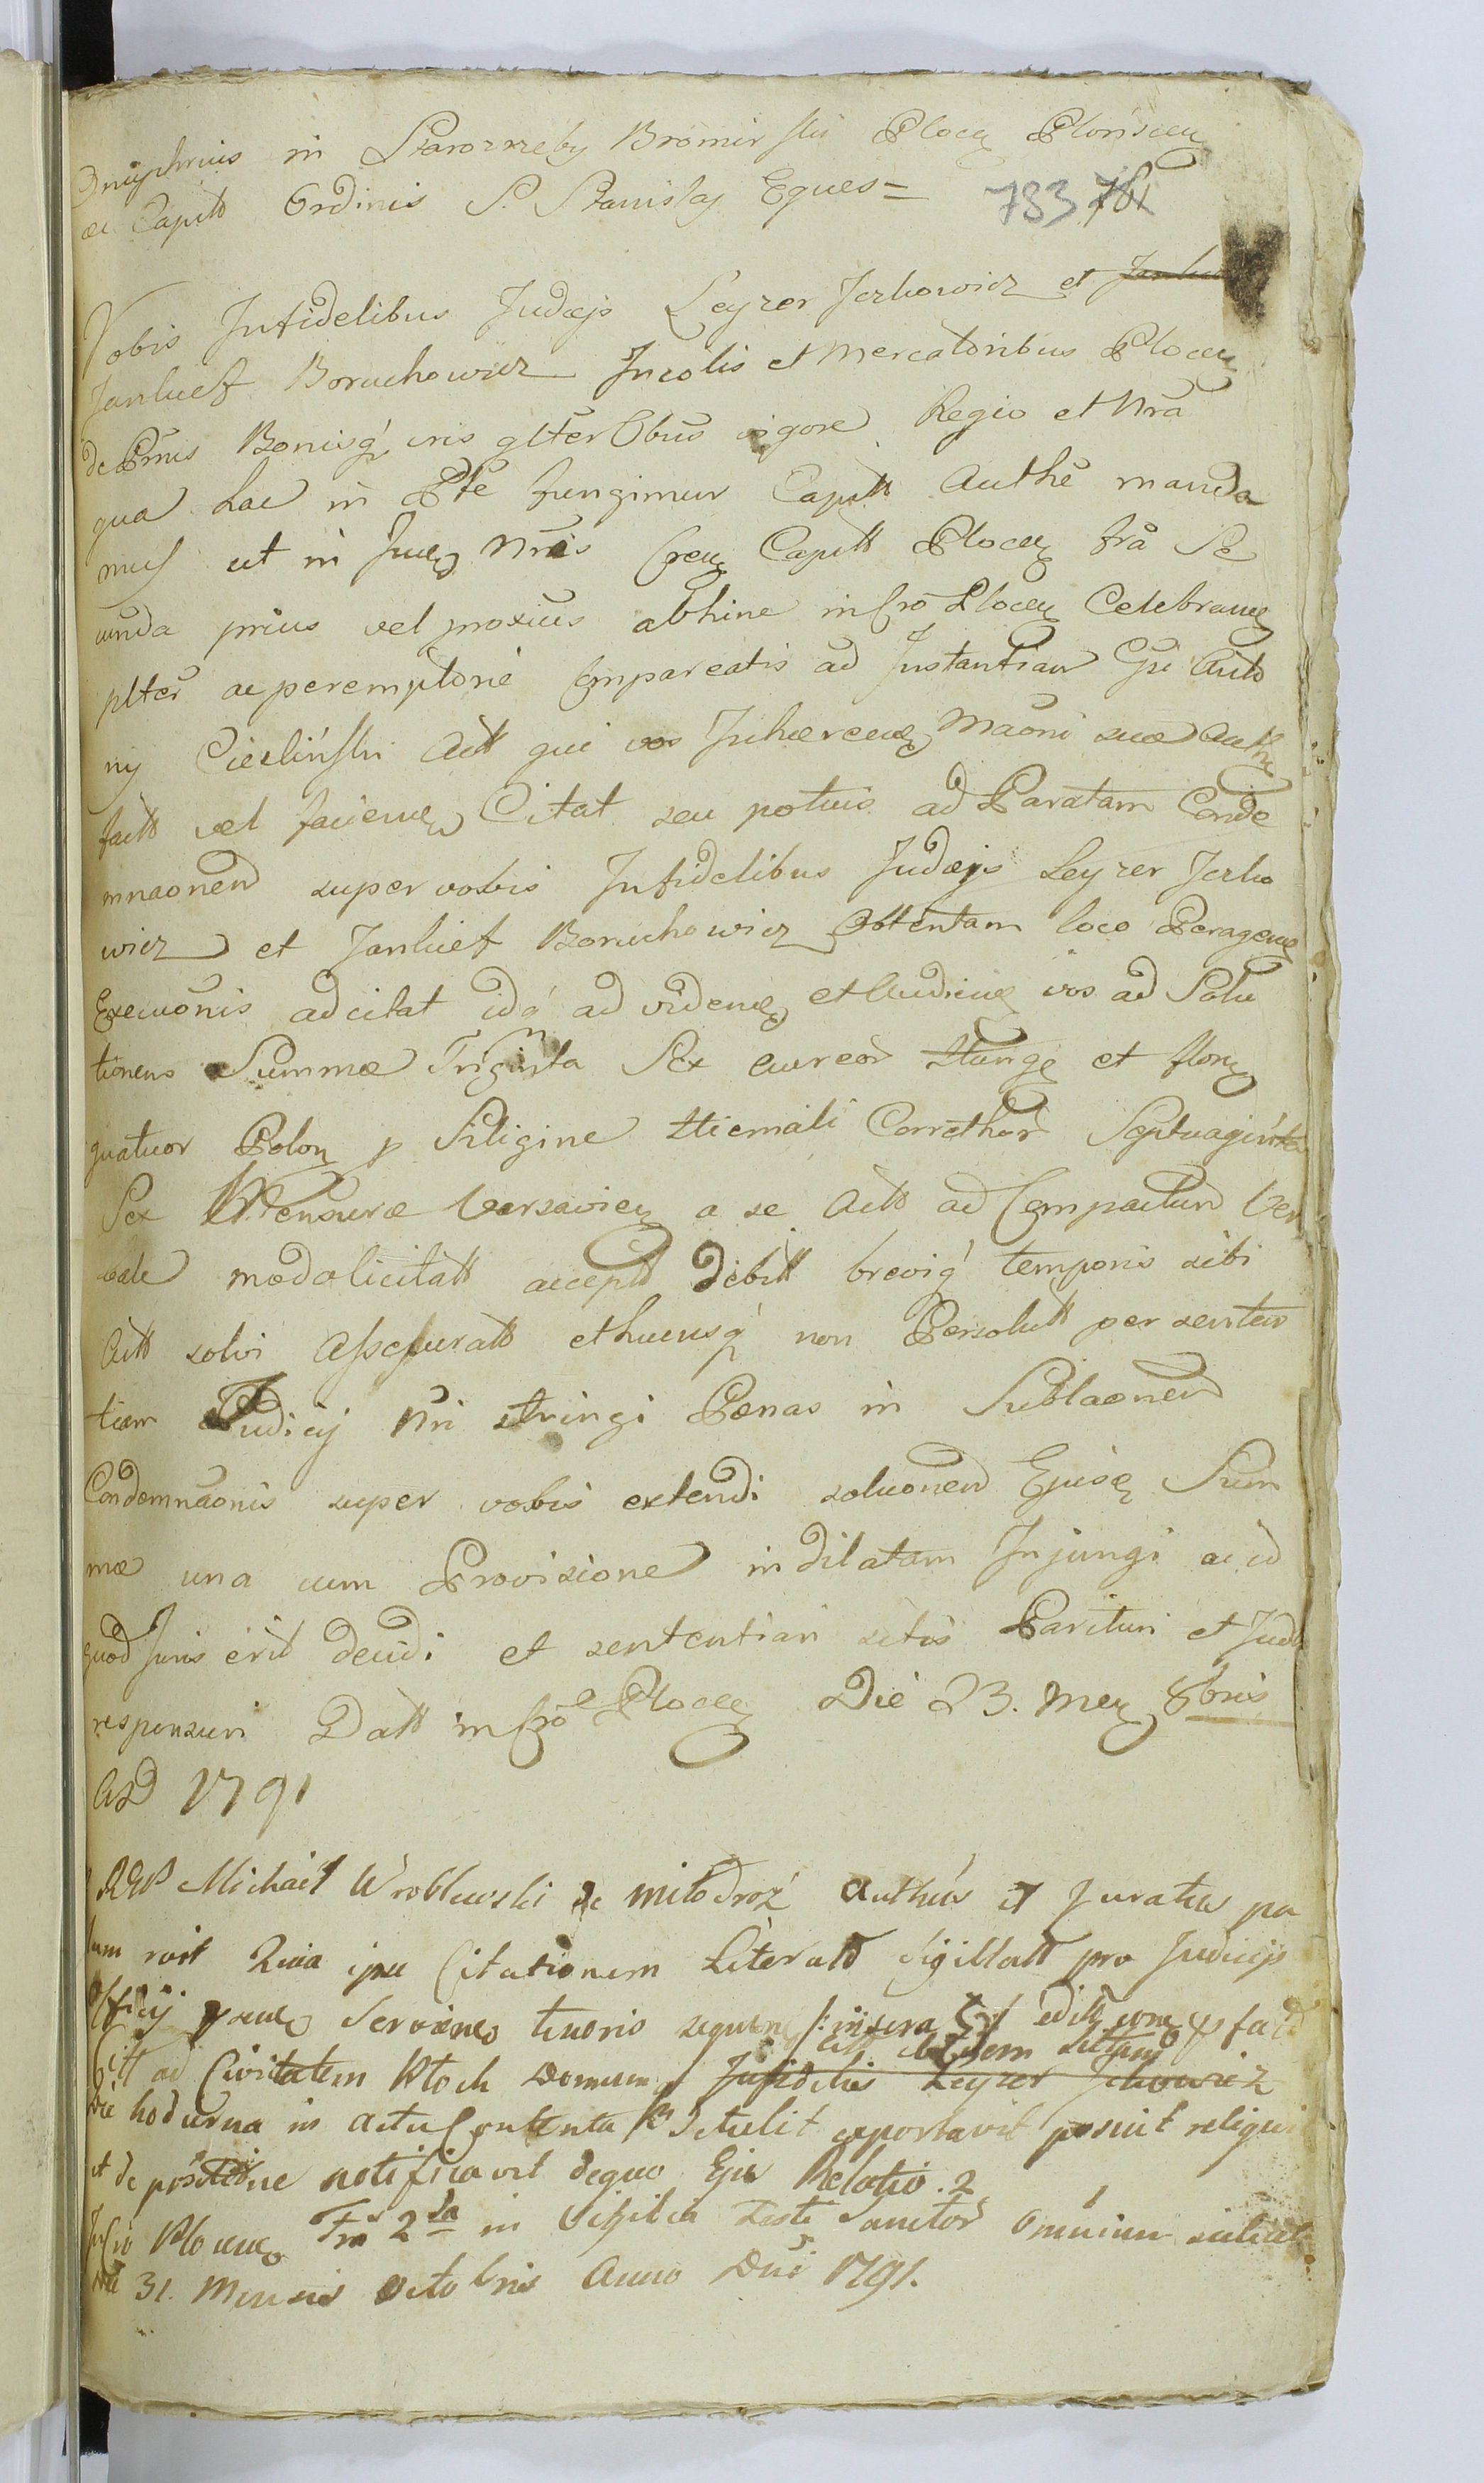 Onuphrius in Starozreby Bromirski Plocen Plonscen
ac Capit Ordinis S. Stanislaj Eques =
783 781
Vobis Infidelibus Judæjs Leyzer Jerkowicz et
Jankief Boruchowicz Incolis et Mercatoribus Plocen
de Bonisq vris glter Obus vigore Regio et Nra
qua hac in Pte fungimur Captt Authe manda
mus ut in Nris Captt Plocen fra Se
cunda prius vel proxius abhinc in Cro Plocen Celebran
plter ac peremptorie Compareatis ad Instantiam Gsi Anto
nij Cieslinski Actt qui vos Inhæren Maoni suæ Authe
factt vel facien Citat seu potius ad Paratam Conde
mnaonem super vobis Infidelibus Judæjs Leyzer Jerko
wicz et Jankief Boruchowicz Obtentam loco Peragen
Execuonis adcitat idq ad viden et Audien vos ad Solu
tionem Summæ Triginta Sex aureor Hung et flor
quatuor Polon p Siligine Hiemali Corethor Septuaginta
Sex Mensuræ Varsavien a se Actt ad Compactum Ver
bale modalicitatt accepta Debitt breviq temporis sibi
Actt solvi Assecuratt et hucusq non Persolutt per senten
tiam Judicij Nri stringi Pœnas in Sublaonem
Condemnaonis super vobis extendi soluonem Ejusd Sum
mæ una cum Provisione indilatam Injungi ac id
quod Juris erit decidi et sententiari sitis Parituri et Judt
responsuri Datt in Cro Plocen Die 23. Men 8bris
AD 1791
Michael Wroblewski de Miłodroż Authus et Juratus pa
lam roit Quia ipse Citationem Literatt Sigillatt pro Judicijs
Officij Servien tenoris sequen /: insera
ad Civitatem Płock Domum Infidelis Leyzer Jerkowicz
Die hodierna in actu Contenta Detulit apportavit posuit reliquit
et de positione notificavit dequo Ejus Relatio. 2
In Cro Plocen Fra 2da in Vigilia Festi Sanctor Omnium scilicet
Die 31. Mensis Octobris Anno Dni 1791.